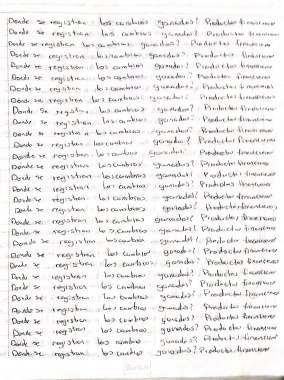 Donde se registran los cambios ganados? Productos financieros
Donde se registran los cambios ganados? Productos financieros
Donde se registran los cambios ganados? Productos financieros
Donde se registran los cambios ganados? Productos financieros
Donde se registran los cambios ganados? Productos financieros
Donde se registran los cambios ganados? Productos financieros
Donde se registran los cambios ganados? Productos financieros
Donde se registran los cambios ganados? Productos financieros
Donde se registran los cambios ganados? Productos financieros
Donde se registran los cambios ganados? Productos financieros
Donde se registran los cambios ganados? Productos financieros
Donde se registran los cambios ganados? Productos financieros
Donde se registran los cambios ganados? Productos financieros
Donde se registran los cambios ganados? Productos financieros
Donde se registran los cambios ganados? Productos financieros
Donde se registran los cambios ganados? Productos financieros
Donde se registran los cambios ganados? Productos financieros
Donde se registran los cambios ganados? Productos financieros
Donde se registran los cambios ganados? Productos financieros
Donde se registran los cambios ganados? Productos financieros
Donde se registran los cambios ganados? Productos financieros
Donde se registran los cambios ganados? Productos financieros
Donde se registran los cambios ganados? Productos financieros
Donde se registran los cambios ganados? Productos financieros
Donde se registran los cambios ganados? Productos financieros
Donde se registran los cambios ganados? Productos financieros
Donde se registran los cambios ganados? Productos financieros
Donde se registran los cambios ganados? Productos financieros
Donde se registran los cambios ganados? Productos financieros